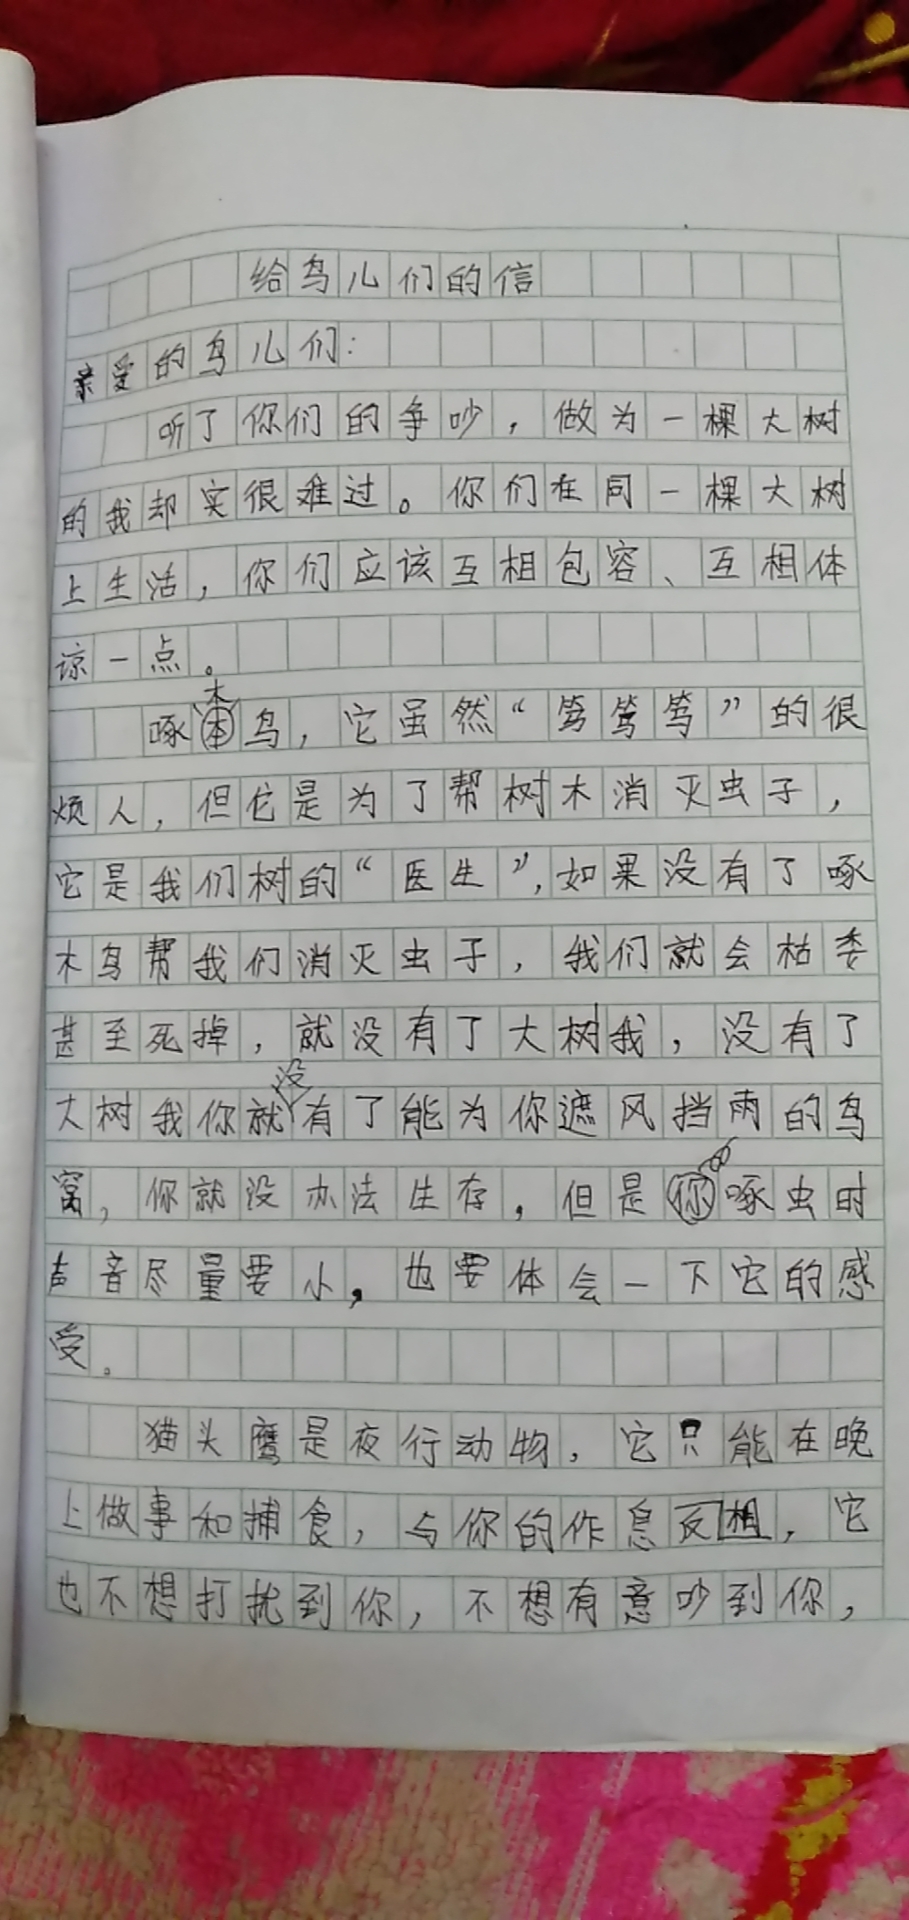 给鸟儿们的信
亲爱的鸟儿们：
听了你们的争吵，做为一棵大树
的我却实很难过。你们在同一棵大树
上生活，你们应该互相包容、互相体
谅一点。
啄木鸟，它虽然“笃笃笃”的很
烦人，但它是为了帮树木消灭虫子，
它是我们树的“医生”，如果没有了啄
木鸟帮我们消灭虫子，我们就会枯委
甚至死掉，就没有了大树我，没有了
大树我你就没有了能为你遮风挡雨的鸟
窝，你就没办法生存，但是啄虫时
声音尽量要小，也要体会一下它的感
受。
猫头鹰是夜行动物，它只能在晚
上做事和捕食，与你的作息反相，它
也不想打扰到你，不想有意吵到你，